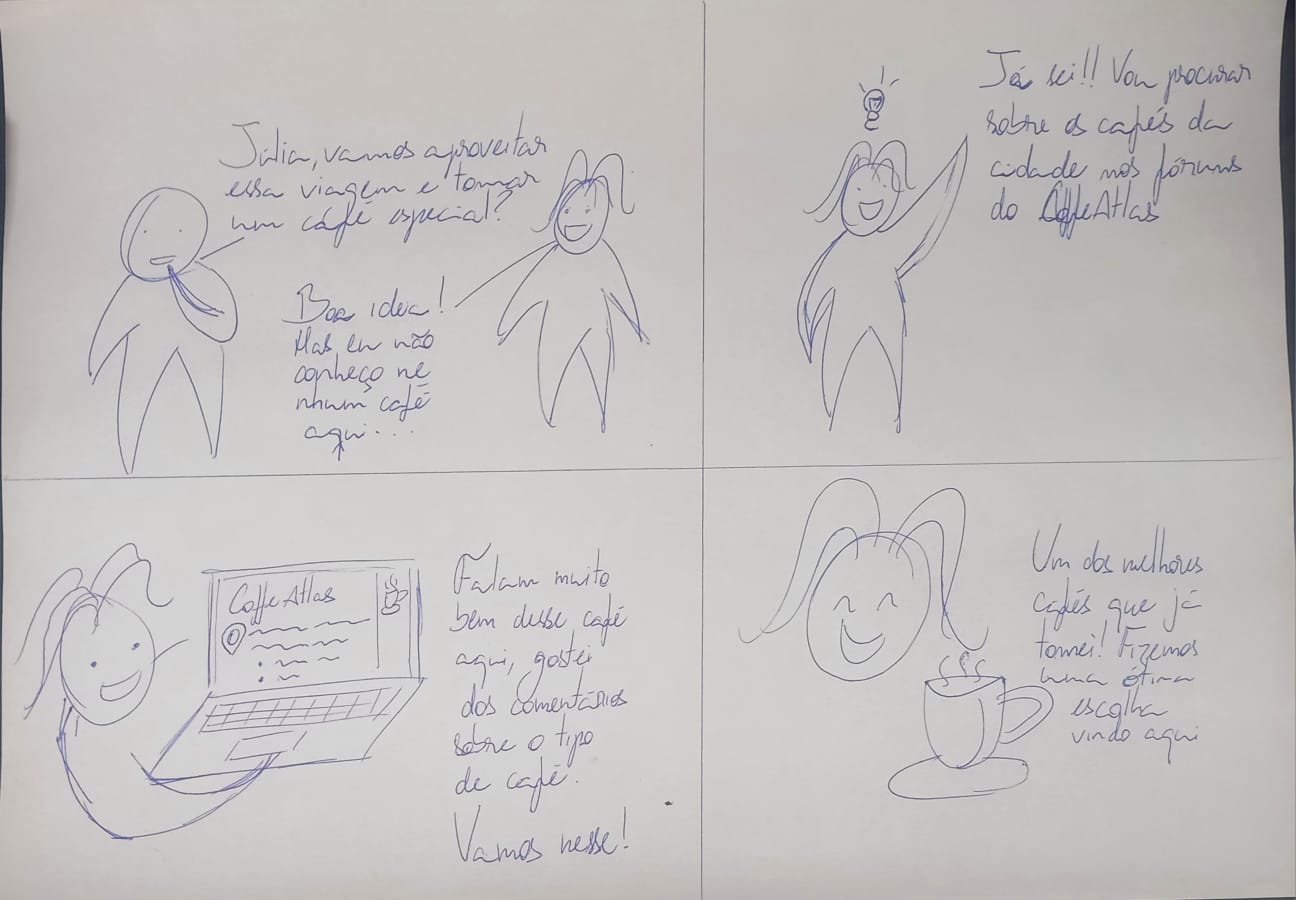 Júlia, vamos aproveitar
essa viagem e tomar
um café especial?
Boa ideia!
Mas eu não
conheço ne
nhum café
aqui...
Já sei!! Vou procurar
sobre os cafés da
cidade nos fóruns
do CoffeAtlas
Coffe Atlas
Falam muito
bem desse café
aqui, gostei
dos comentários
sobre o tipo
de café.
Vamos nesse!
Um dos melhores
cafés que já
tomei! Fizemos
uma ótima
escolha
vindo aqui